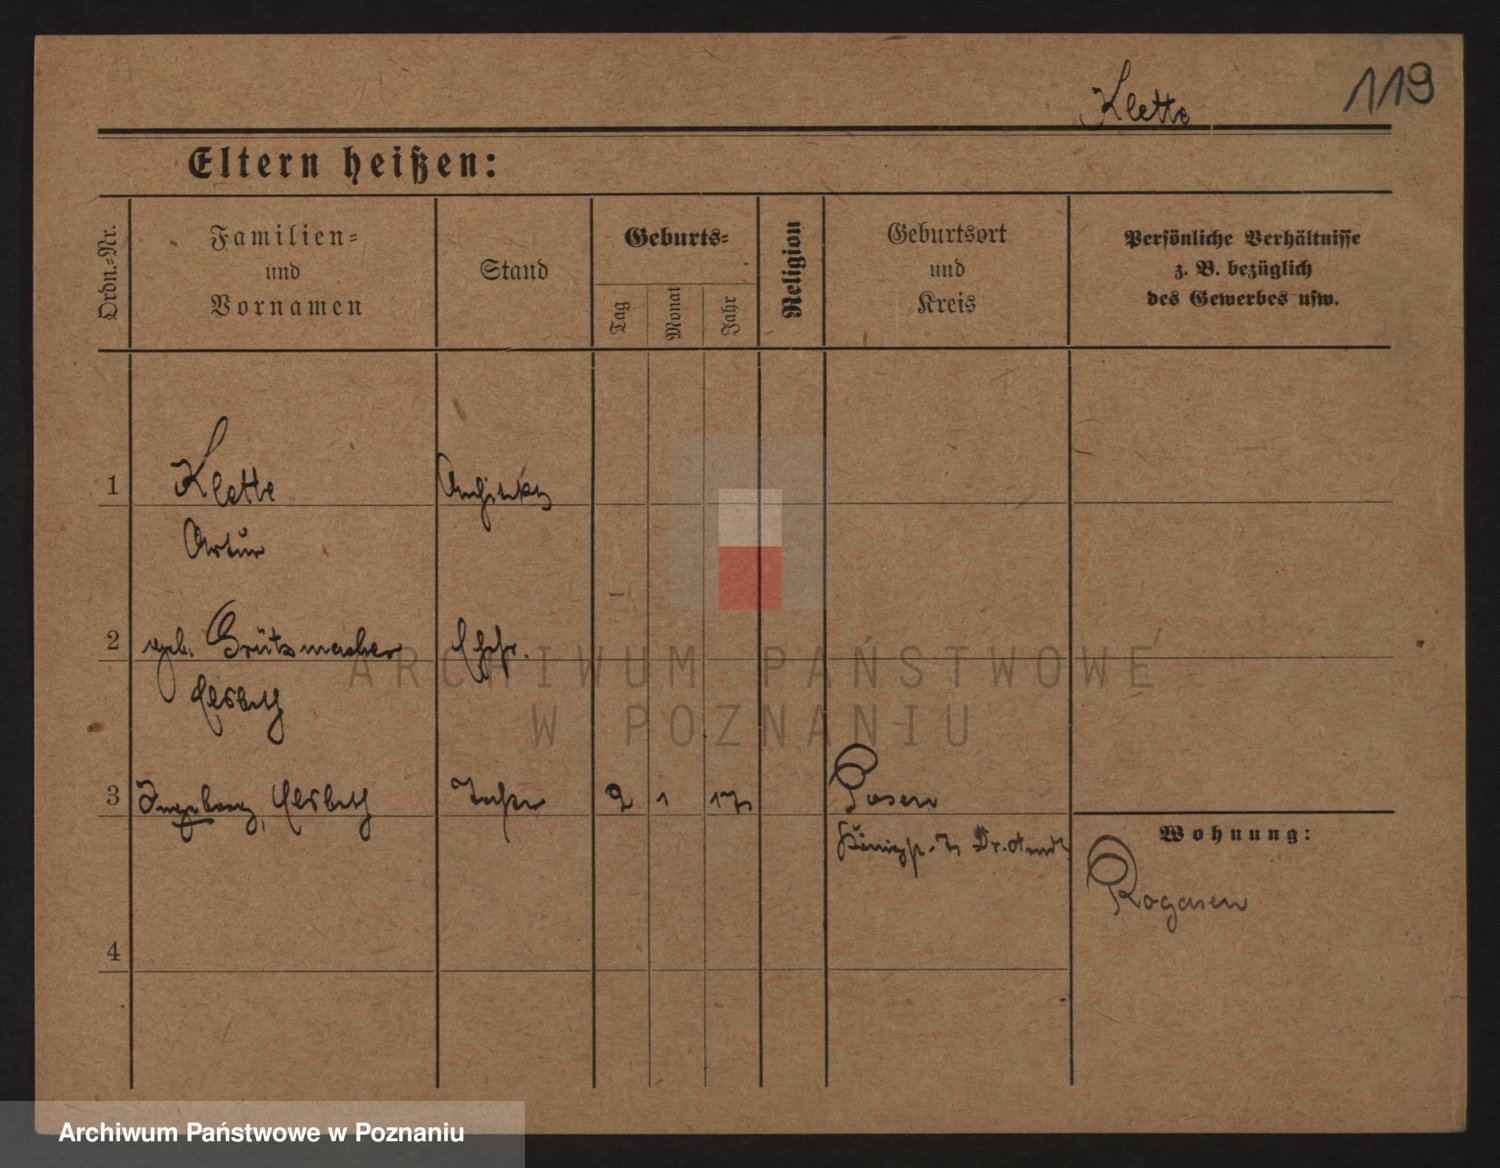 119
Klette
Eltern heißen:
Ordn.-Nr.
Familien-
und
Vornamen
Stand
Geburts-
Tag
Monat
Jahr
Religion
Geburtsort
und
Kreis
Persönliche Verhältnisse
z. B. bezüglich
des Gewerbes usw.
1 Klette Architekt
Artur
2 geb. Grützmacher Ehefr.
Elsbeth
3 Ingeborg, Elsbeth Tochter 2 1 17 Posen
Königspl.
Wohnung:
Rogasen
4
ARCHIWUM PAŃSTWOWE
W POZNANIU
Archiwum Państwowe w Poznaniu